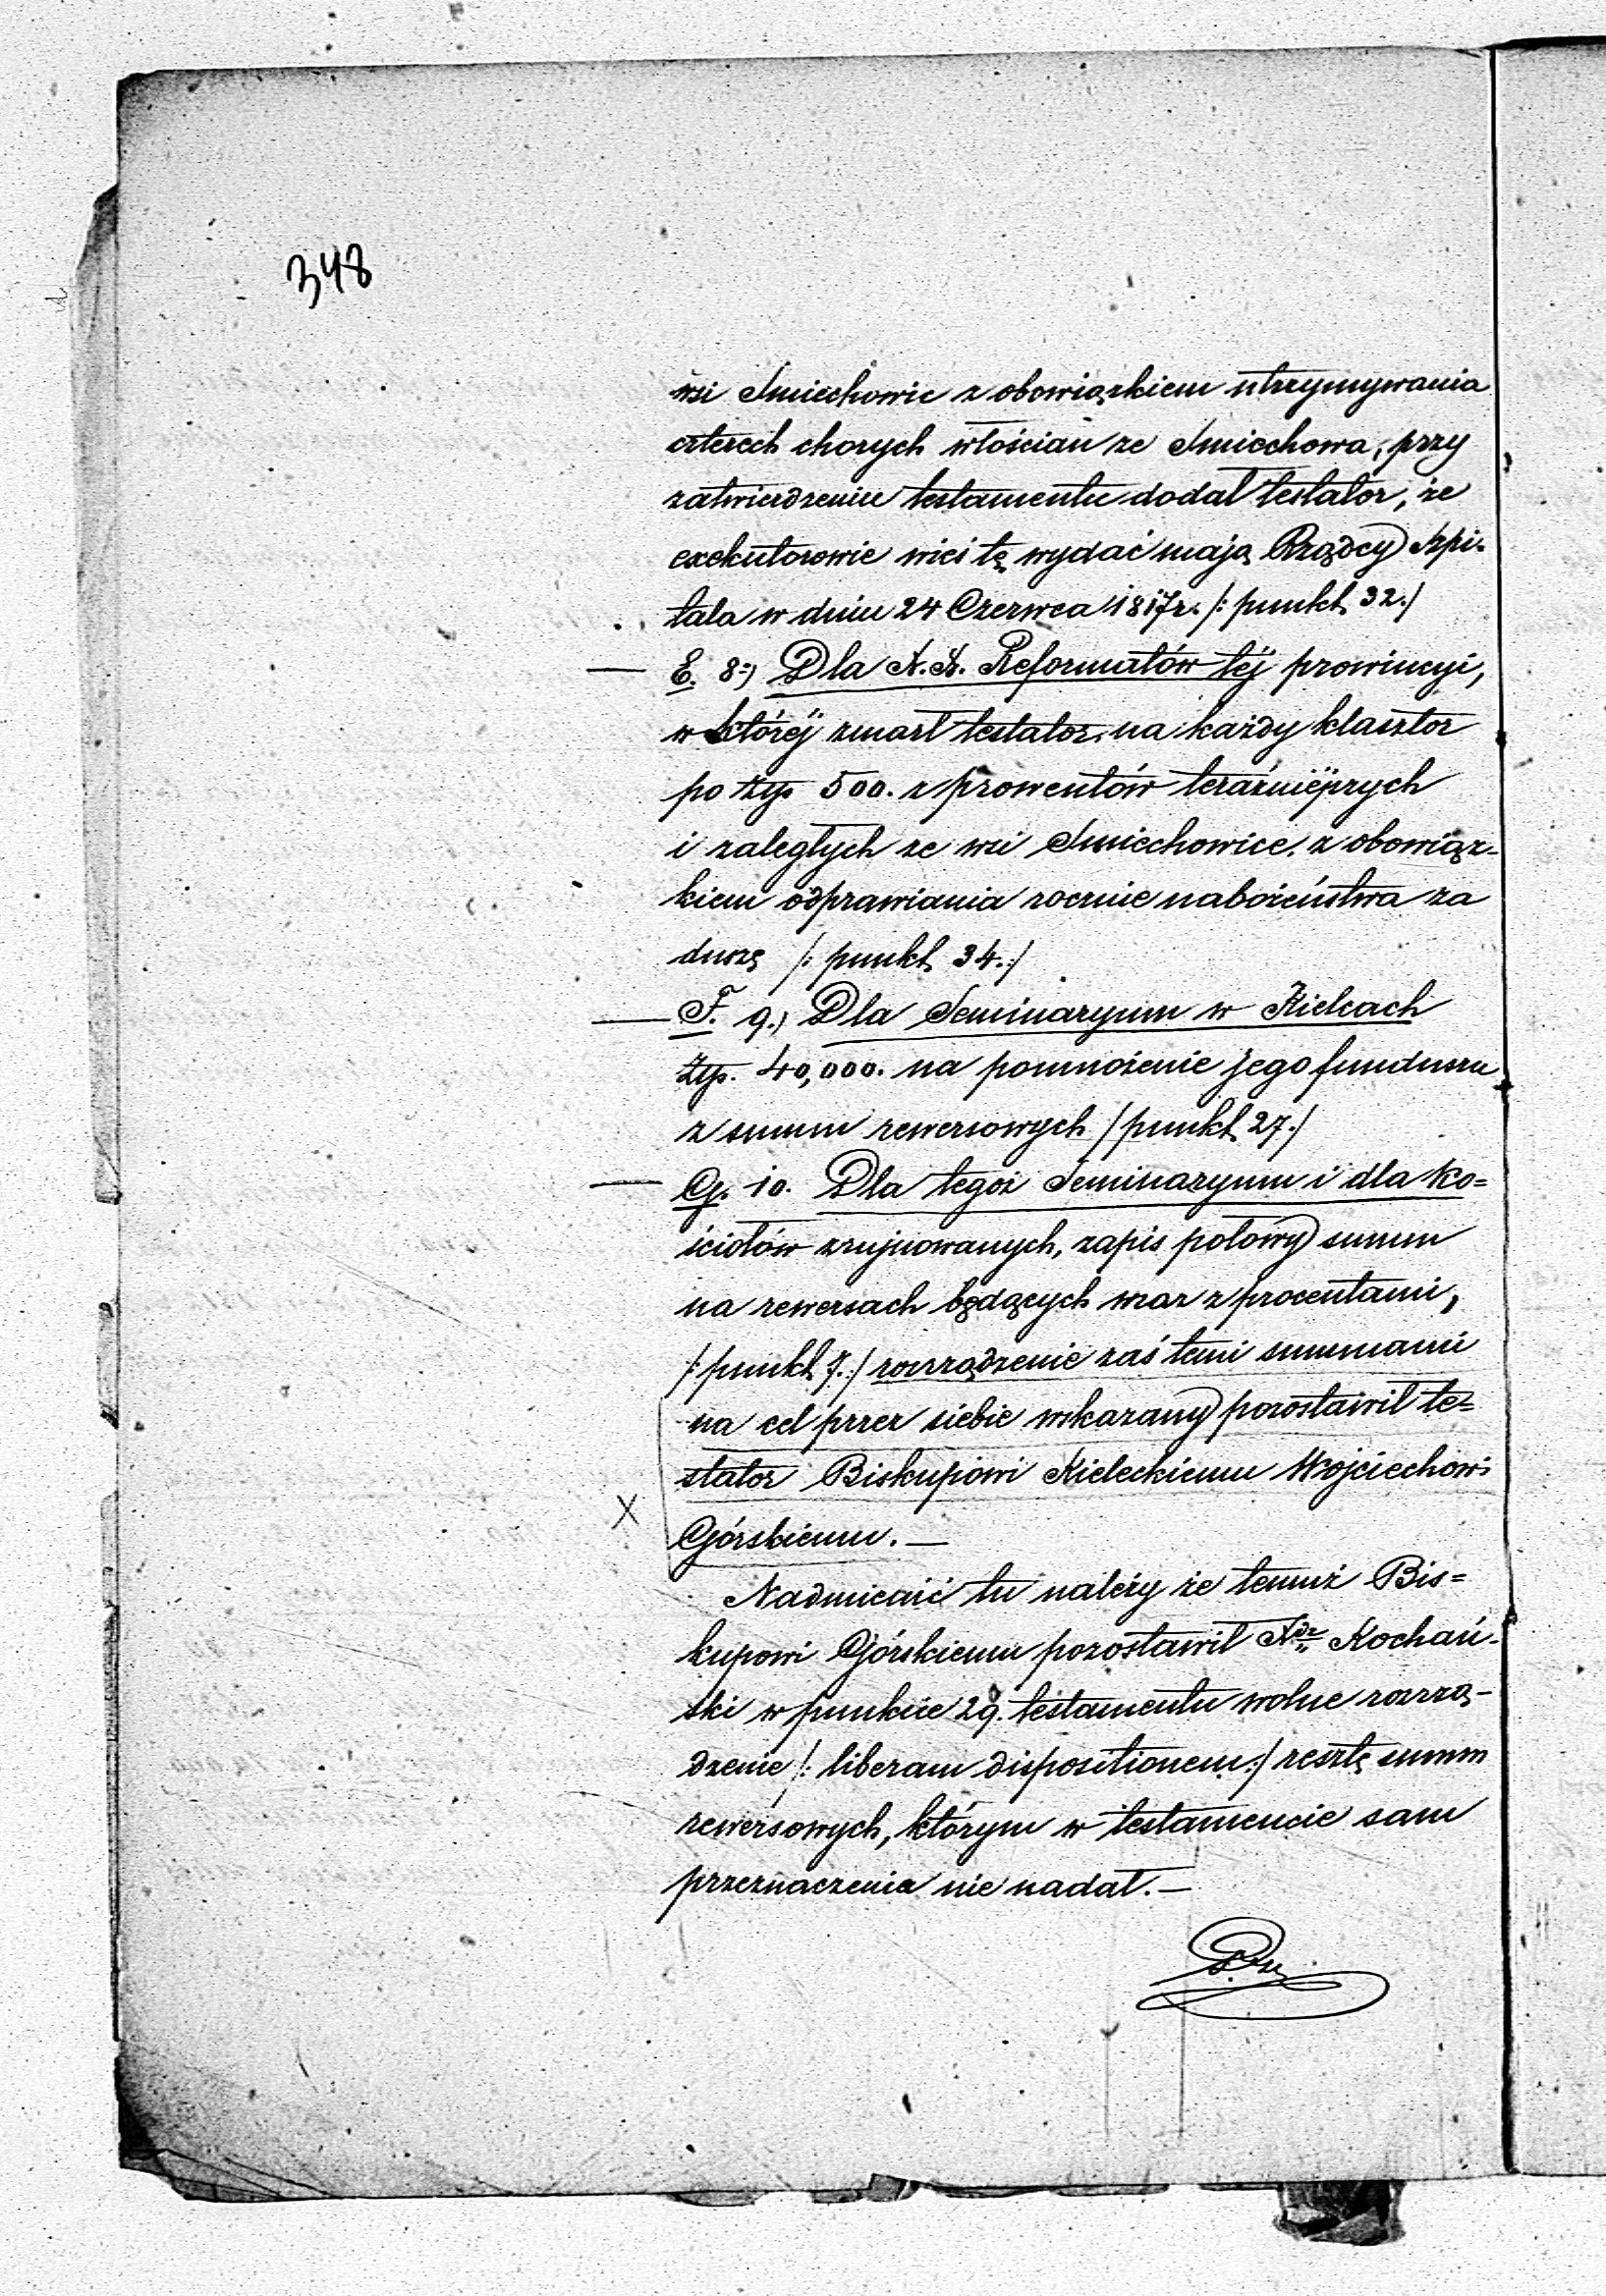 348
wsi Śmiechowic z obowiązkiem utrzymywania
czterech chorych włościan ze Śmiechowa, przy
zatwierdzeniu testamentu dodał testator, że
exekutorowie wieś tę wydać mają Rządcy Szpi-
tala w dniu 24 Czerwca 1817r. /: punkt 32./
E. 8-) Dla X.X. Reformatów téj prowincyi,
w któréj zmarł testator, na każdy klasztor
po złp 500. z prowentów teraźniéjszych
i zaległych ze wsi Śmiechowice, z obowiąz-
kiem odprawiania rocznie nabożeństwa za
duszę /: punkt 34.:/
F. 9.) Dla Seminaryum w Kielcach
Złp. 40,000. na pomnożenie jego funduszu
z summ rewersowych /punkt 27./
G. 10. Dla tegoż Seminaryum i dla ko=
ściołów zrujnowanych, zapis połowy summ
na rewersach będących wraz z procentami,
/: punkt 7.:/ rozrządzenie zaś temi summami
na cel przez siebie wskazany pozostawił te=
stator Biskupowi Kieleckiemu Wojciechowi
Górskiemu. —
X
Nadmienić tu należy że temuż Bis=
kupowi Górskiemu pozostawił Xdz Kochań-
ski w punkcie 29. testamentu wolne rozrzą-
dzenie /: liberam dispositionem:/ resztę summ
rewersowych, którym w testamencie sam
przeznaczenia nie nadał. —